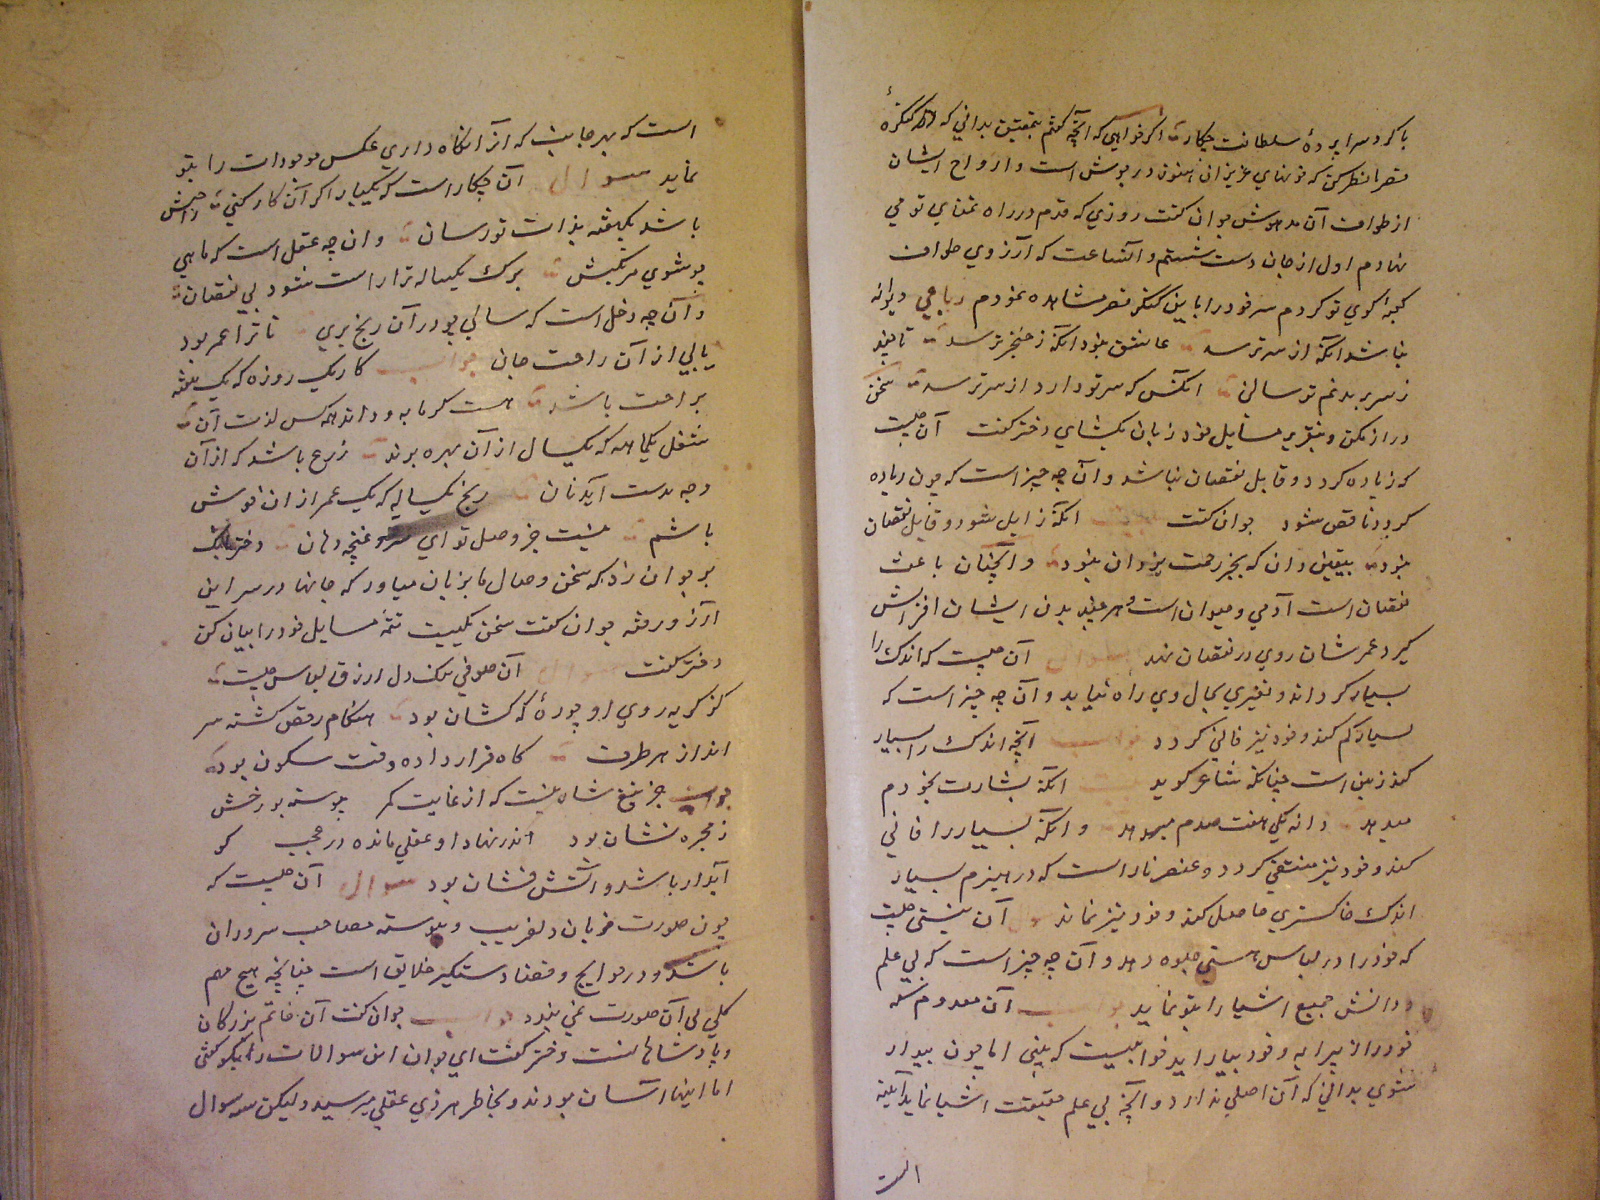 با کرد سراپردهٔ سلطانت چکار اگر خواهی که آنچه گفتم بتحقیق بدانی که کنگرهٔ
قصر نظر کن که خونهای عزیزان هنوز در جوش است و ارواح ایشان
از طواف آن مدهوش جوان گفت روزی که قدم در راه تمنای تو می
نهادم اول از جان دست شستم و آنساعت که آرزوی طواف
کعبه کوی تو کردم سر خود را باین کنگر قصر مشاهده نمودم رباعی دیوانه
نباشد آنکه از سر ترسد عاشق نبود آنکه ز خنجر ترسد
ز سر برید غم تو سالی آنکس که سر تو دارد از سر ترسد سخن
دراز مکن و بتقریر مسایل خود زبان بکشای دختر گفت آن چیست
که زیاده کردد و قابل نقصان نباشد و آن چه چیز است که چون زیاده
کردد ناقص شود جوان گفت آنکه زایل نشود و قابل نقصان
نبود بیقین دان که بجز رحمت یزدان نبود و آنچنان باعث
نقصان است آدمی و حیوان است هر چند بدن ایشان افزایش
کیرد عمرشان روی در نقصان نهد سوال آن چیست که اندک را
بسیار کرداند و تغیری بحال وی راه نیابد و آن چه چیز است که
بسیار کم کند و خود نیز فانی کردد جواب آنچه اندک را بسیار
کند زمین است چنانکه شاعر کوید آنکه بشارت بخودم
میدهد دانه یکی هفتصدم میدهد و آنکه بسیار را فانی
کند و خود نیز منتفی کردد و عنصر نار است که در هیزم بسیار
اندک خاکستری حاصل کند و خود نیز نماند آن نیستی چیست
که خود را در لباس هستی جلوه دهد و آن چه چیز است که بی علم
و دانش جمیع اشیا را بتو نماید جواب آن معدوم که
خود را از پیرایه وجود بیاراید خوابیست که بینی اما چون بیدار
شوی بدانی که آن اصلی ندارد و آنچه بی علم حقیقت اشیا نماید آینه
است
است که بهر جانب که آنرا نکاه داری عکس موجودات را بتو
نماید سوال آن چکار است که یکبار اکر آن کار کنی راحتش
باشد یکهفته بذات تو رسان وان چه عقل است که ماهی
چو شوی مرتکبش برک یکساله ترا راست شود بی نقصان
و آن چه دخل است که سالی چو در آن رنج بری تا ترا عمر بود
یابی از آن راحت جان جواب کار یک روزه که یک هفته
براحت باشد هست کرمابه و داند همه کس لذت آن
شغل یکماهه که یکسال از آن بهره برند زرع باشد که از آن
وجه بدست آید نان رنج یکساله که یک عمر از ان خوش
باشم نیست جز وصل تو ای سرو غنچه دهان دختر بانک
بر جوان زد که سخن وصال ما بزبان میاور که جانها در سر این
آرزو رفته جوان گفت سخن یکیست تتمه مسایل خود را بیان کن
دختر گفت سوال آن صوفی سنک دل ازرق لباس چیست
کز کریه روی او چو ره کهکشان بود هنکام رقص کشته سر
انداز هر طرف کاه قرار داده وقت سکون بود
جواب جز تیغ شاه نیست که از غایت کهر پیوسته بر رخش
ز مجره نشان بود اندر نهاد او عقلی مانده در عجب کو
آبدار باشد و آتش فشان بود سوال آن چیست که
چون صورت خوبان دلفریب و پیوسته مصاحب سروران
باشد و در حوایج و قضا دستکیر خلایق است چنانچه هیچ مهم
کلی بی آن صورت نمی بندد جواب جوان گفت آن خاتم بزرکان
و پادشاهانست دختر گفت ای جوان این سوالات را نیکو گفتی
اما اینها آسان بودند و بخاطر هر ذی عقلی میرسید ولیکن سه سوال